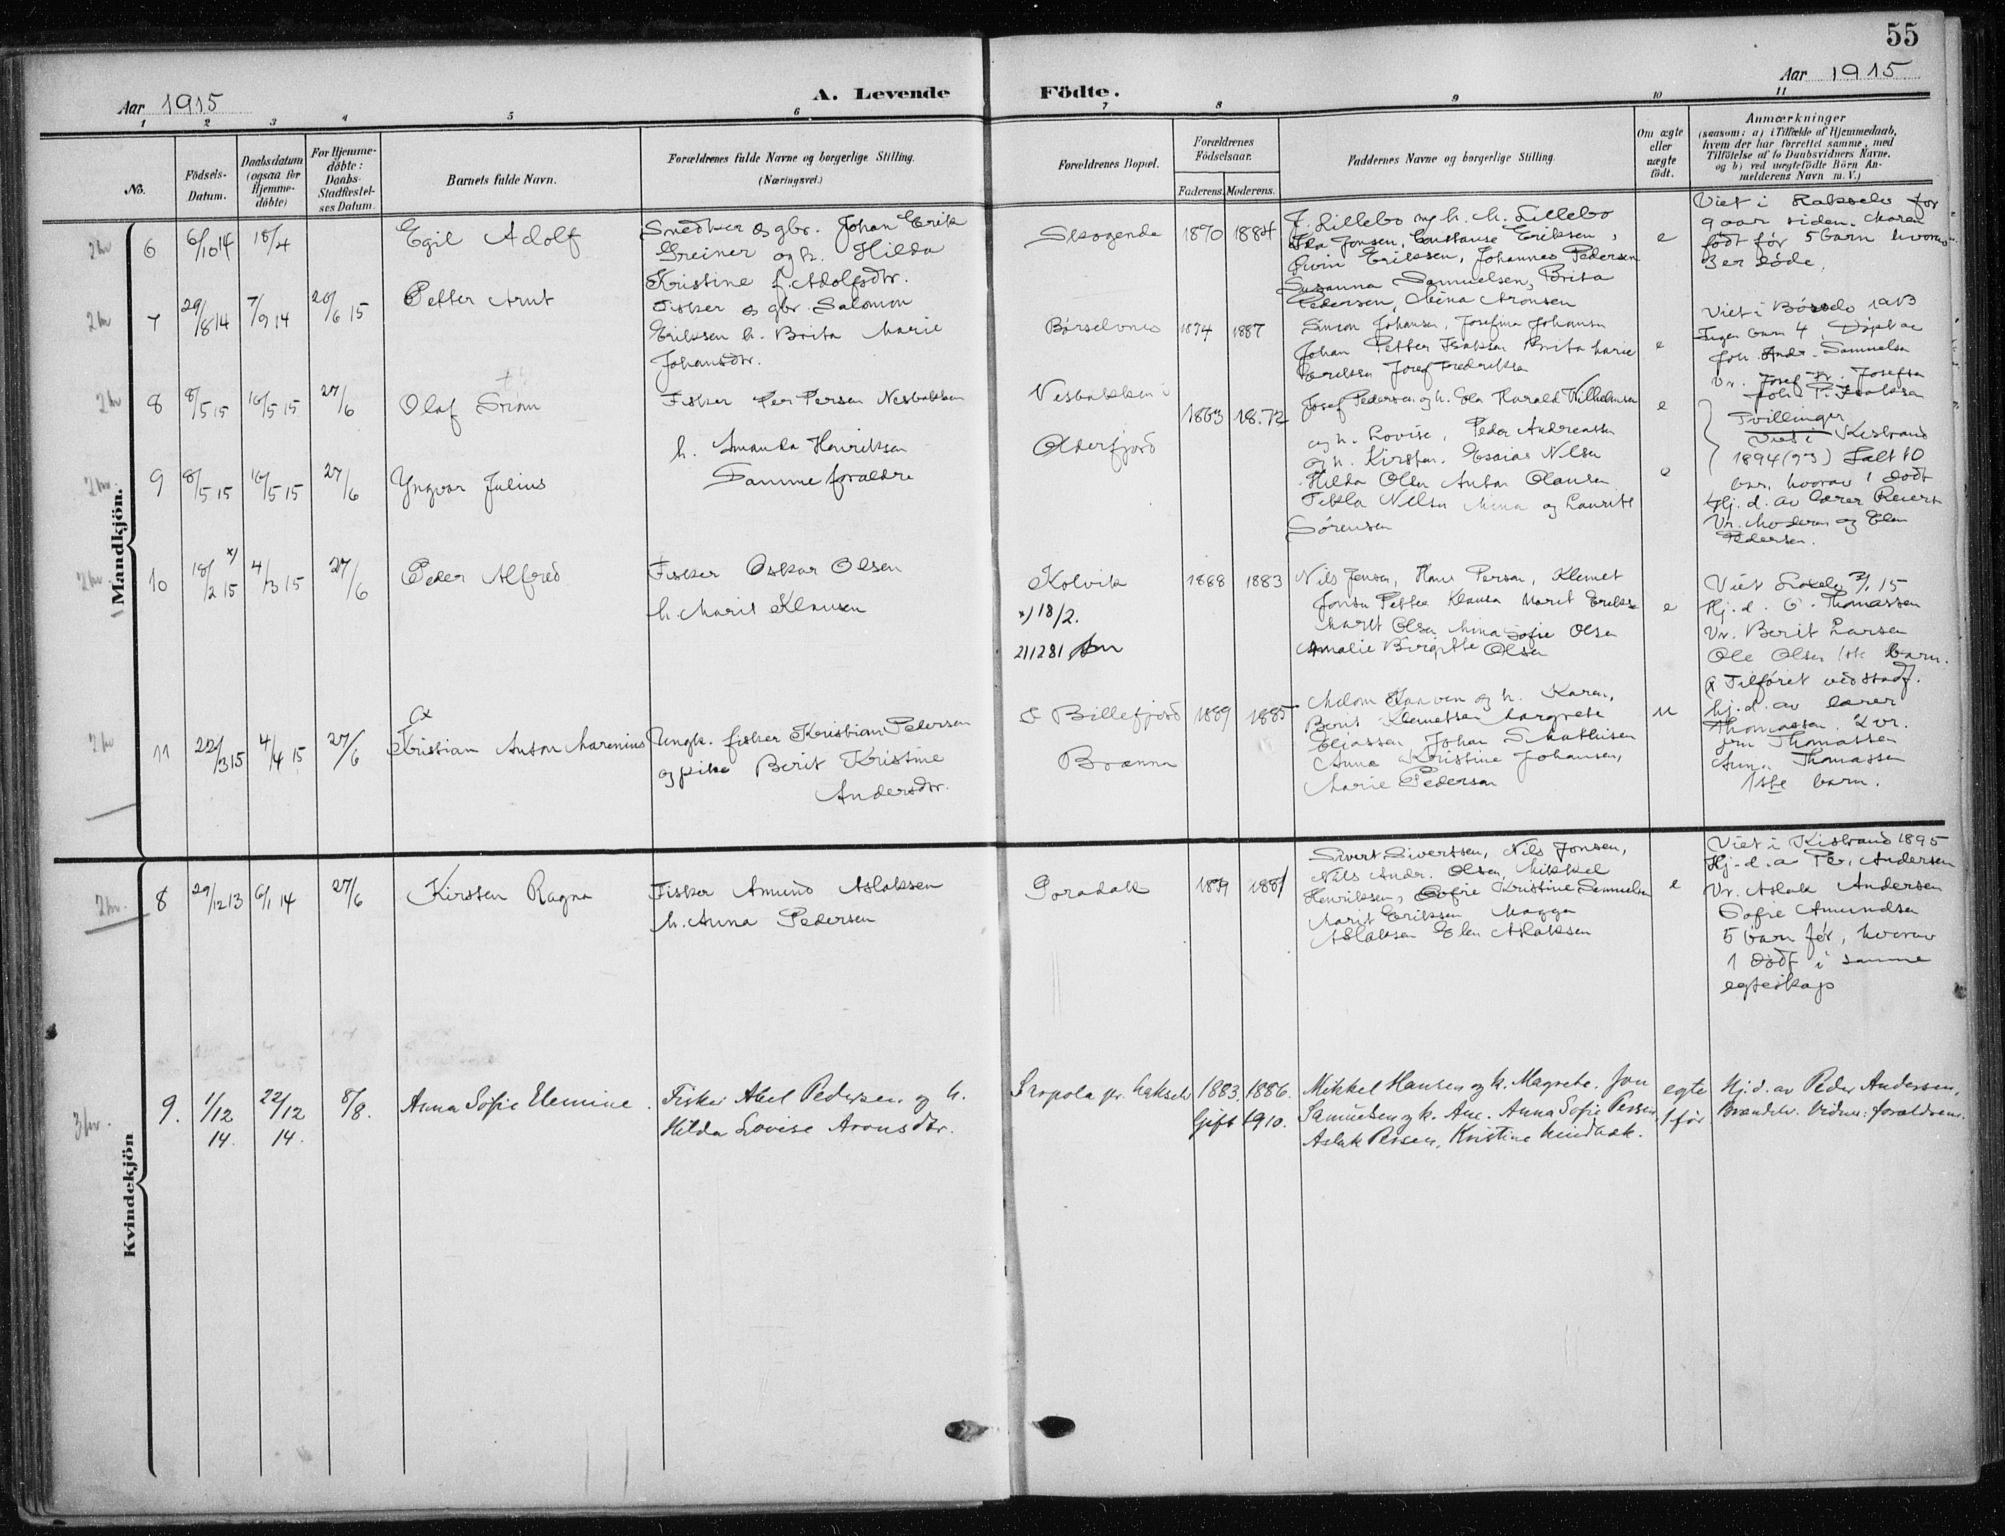 55
Aar 1915
A. Levende Födte.
Aar 1915
1 2 3 4 5 6 7 8 9 10 11
No.
Födsels-
Datum.
Daabsdatum
(ogsaa for
Hjemme-
döbte)
For Hjemme-
döbte:
Daabs-
Stadfestel-
ses Datum.
Barnets fulde Navn.
Forældrenes fulde Navne og borgerlige Stilling.
(Næringsvei.)
Forældrenes Bopæl.
Forældrenes
Födselsaar.
Faderens. Moderens.
Faddernes Navne og borgerlige Stilling.
Om ægte
eller
uægte
födt.
Anmærkninger
(saasom: a) i Tilfælde af Hjemmedaab,
hvem der har forrettet samme, med
Tilföielse af to Daabsvidners Navne,
og b) ved uægtefödte Börn An-
melderens Navn m. V.)
Mandkjön.
6 6/10 14 18/4 Egil Adolf
Snedker og gbr. Johan Erik
Greiner og h. Hilda
Kristine f. Adolfsdtr.
Skoganda 1870 1884
J. Lillebo og h. M. Lillebo
Ida Jonsen, Constanse Eriksen,
Eivin Eriksen, Johannes Pedersen
Susanna Samuelsen, Brita
Pedersen, Mina Aronsen
e
Viet i Kakselv for
9 aar siden. Moren
født før 5 barn hvorav
3 er døde.
7 29/8 14 7/9 14 20/6 15 Petter Arnt
Fisker og gbr. Salomon
Eriksen h. Brita Marie
Johansdtr.
Børselvnes 1874 1887
Simon Johansen, Josefina Johansen
Johan Petter Isaksen Brita Marie
Eriksen Josef Fredriksen
e
Viet i Børselv 1913
Ingen barn 4 Døpt av
Joh. Andr. Samuelsen
Vr. Josef Fr. Josefsen
Joh. P. Isaksen
8 8/5 15 16/5 15 27/6 Olaf
Fisker Per Persen Nesbakken
h. Amanda Henriksen
Nesbakken i
Olderfjord
1863 1872
Josef Pedersen og h. Ella Harald Wilhelmsen
og h. Lovise, Peder Andreassen
og h. Kirsten. Esaias Nilsen
Hilda Olsen Anton Olausen
Tekla Nilsen Mina og Laurits
Sörensen
e
Tvillinger
Viet i Kistrand
1894 (93) Ialt 10
barn, hvorav 1 dødt
Hj. d. av lærer Reiert
Vr. Moderen og Elen
Pedersen.
9 8/5 15 16/5 15 27/6 Yngvar Julius
Samme foraldre
e
10 18/2 15 x) 4/3 15 27/6 Peder Alfred
Fisker Oskar Olsen
h. Marit Klausen
Kolvik 1888 1883
x) 18/2.
211281
Nils Jensen, Hans Persen, Klemet
Jonsen Petter Klausen Marit Eriksen
Marit Olsen Mina Sofie Olsen
Amalie Birgitte Olsen
e
Viet Lakselv 15
Hj. d. O. Thomassen
Vr. Berit Larsen
Ole Olsen 1ste barn.
11 22/3 15 4/4 15 27/6 Kristian Anton Marenius
Ungk. fisker Kristian Pedersen
og pike Berit Kristine
Andersdtr.
Billefjord
Brenna
1889 1885
Karen,
Berit Klemetsen Margrete
Eliassen, Johan Mathisen
Anna Kristine Johansen,
Marie Pedersen
u
Tilføiet ved stadf.
hj. d. av lærer
Thomassen. 2 vr.
fru Thomassen
Anna Thomassen
1ste barn.
Kvindekjön
8 29/12 13 6/1 14 27/6 Kirsten Ragna
Fisker Amund Aslaksen
h. Anna Pedersen
1881
Sivert Sivertsen, Nils Jonsen,
Nils Andr. Olsen, Mikkel
Henriksen, Sofie Kristine Samuelsen
Marit Eriksen Magga
Aslaksen Elen Aslaksen
e
Viet i Kistrand 1895
Hj. d. a Per. Andersen
Vr. Aslak Andersen
Sofie Amundsen
5 barn før, hvorav
1 dødt i samme
egteskap
9. 1/12 14. 22/12 14. 8/8. Anna Sofie Elemine.
Fisker Abel Pedersen og h.
Hilda Lovise Aronsdtr.
1883. 1886.
Gift 1910.
Mikkel Hansen og h. Magrete. Jon
Samuelsen og h. Ane. Anna Sofie Persen
Aslak Persen, Kristine
egte
1 før
Hj. d. av Peder Andersen,
Brændelv. Vidner: forældrene.